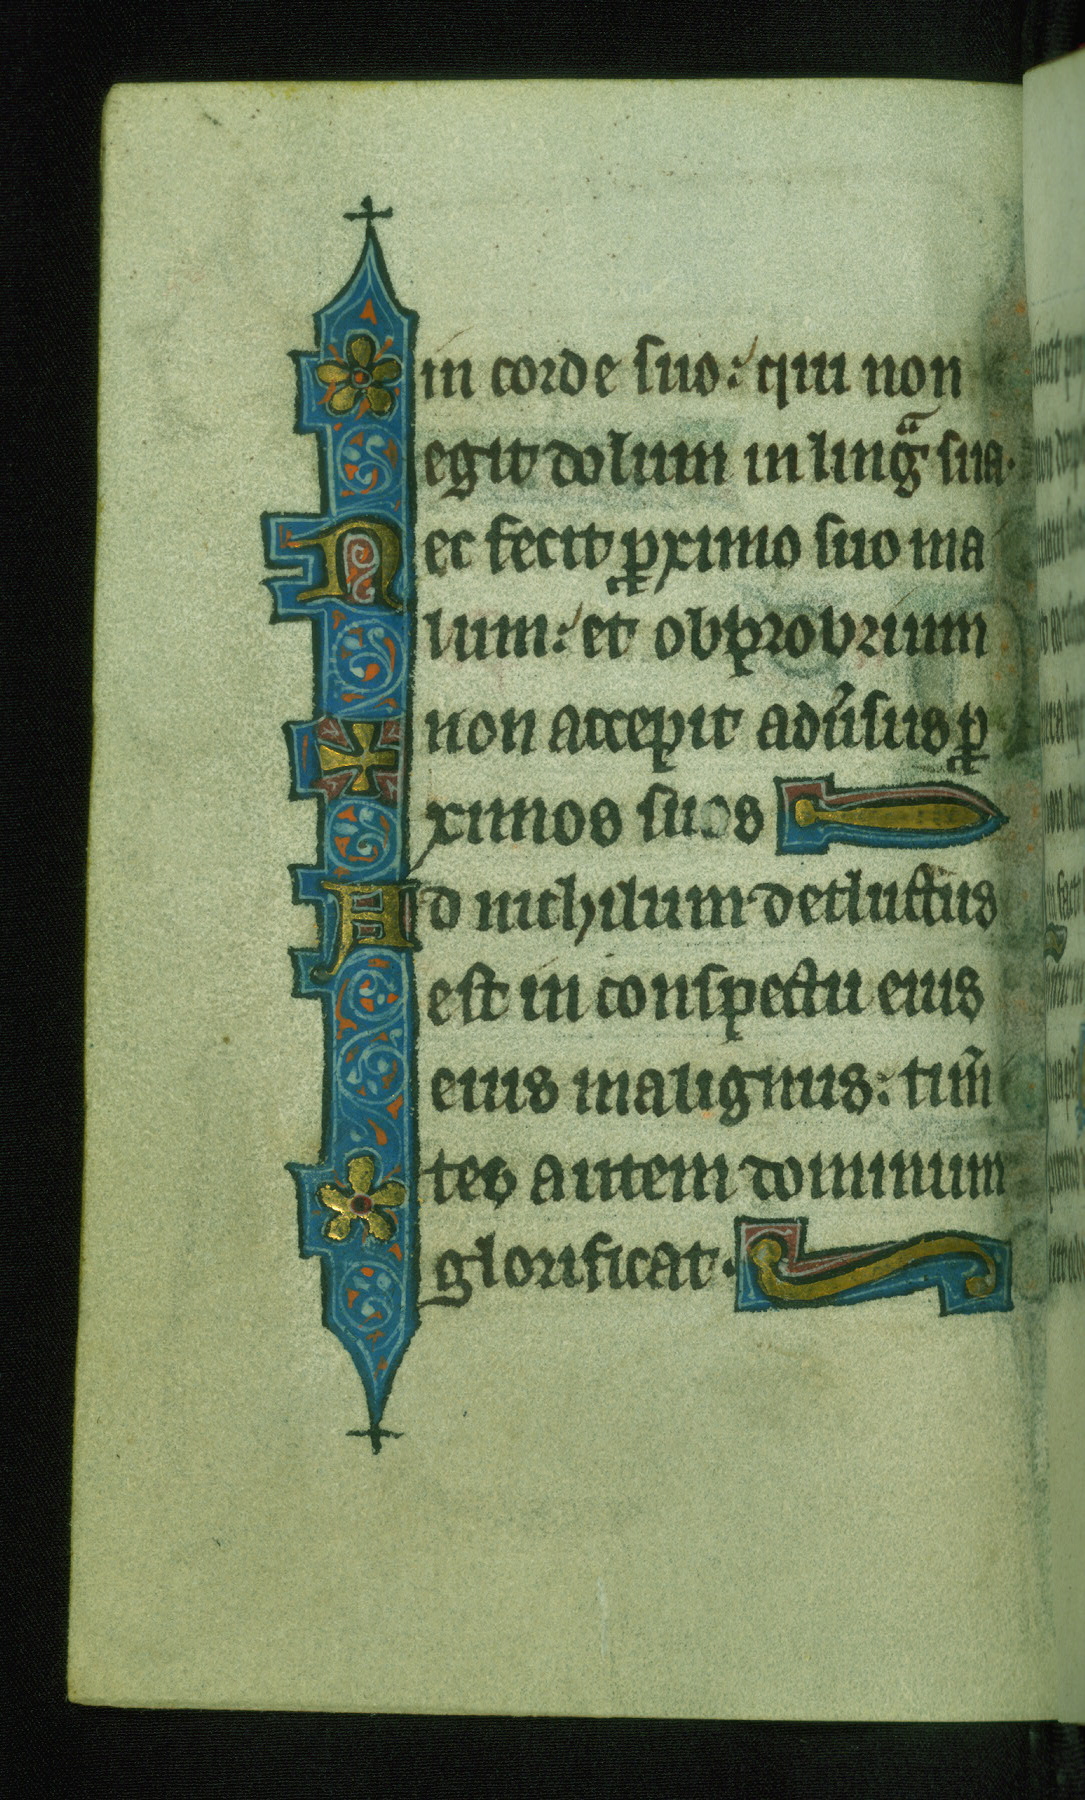 in corde suo: qui non
egit dolum in lingᷓ sua.
Nec fecit ꝓximo suo ma
lum: et obꝓrobrium
non accepit adu̾sus ꝓ
ximos suos
Ad nichilum detluctus
est in conspectu eius
eius malignus: tim̅
tes autem dominum
glorificat.